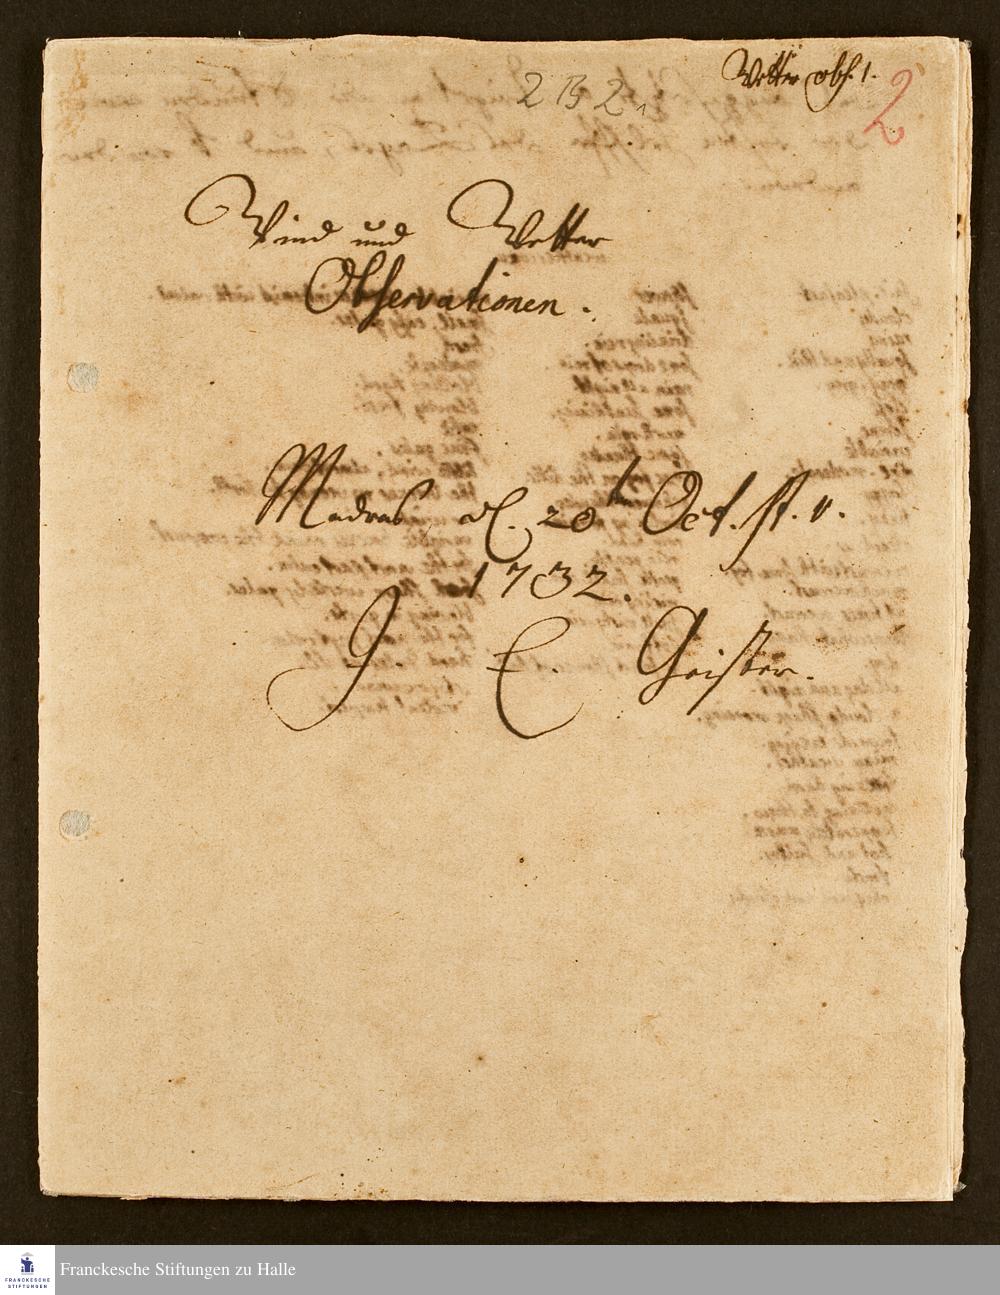 Wetter obs. 1.
2 B 2
2
Wind und Wetter
Observationen.
Madras, d. 20ten Oct. st. v.
1732.
J. E. Geister.
FRANCKESCHE
STIFTUNGEN
Franckesche Stiftungen zu Halle